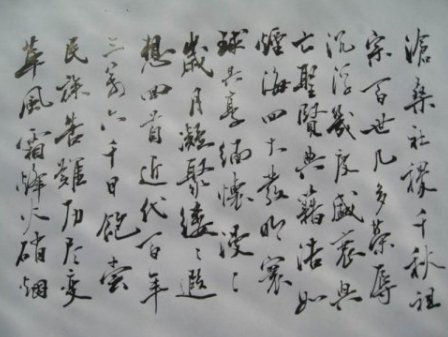 滄桑社稷千秋祖
宗百世几多荣辱
沉浮幾度盛衰興
亡聖賢典藉浩如
煙海四大發明寰
球共享緬懷漫〻
歲月凝聚縷〻遐
想回首近代百年
三萬六千日飽嘗
民族苦難历尽变
革風霜烽火硝烟